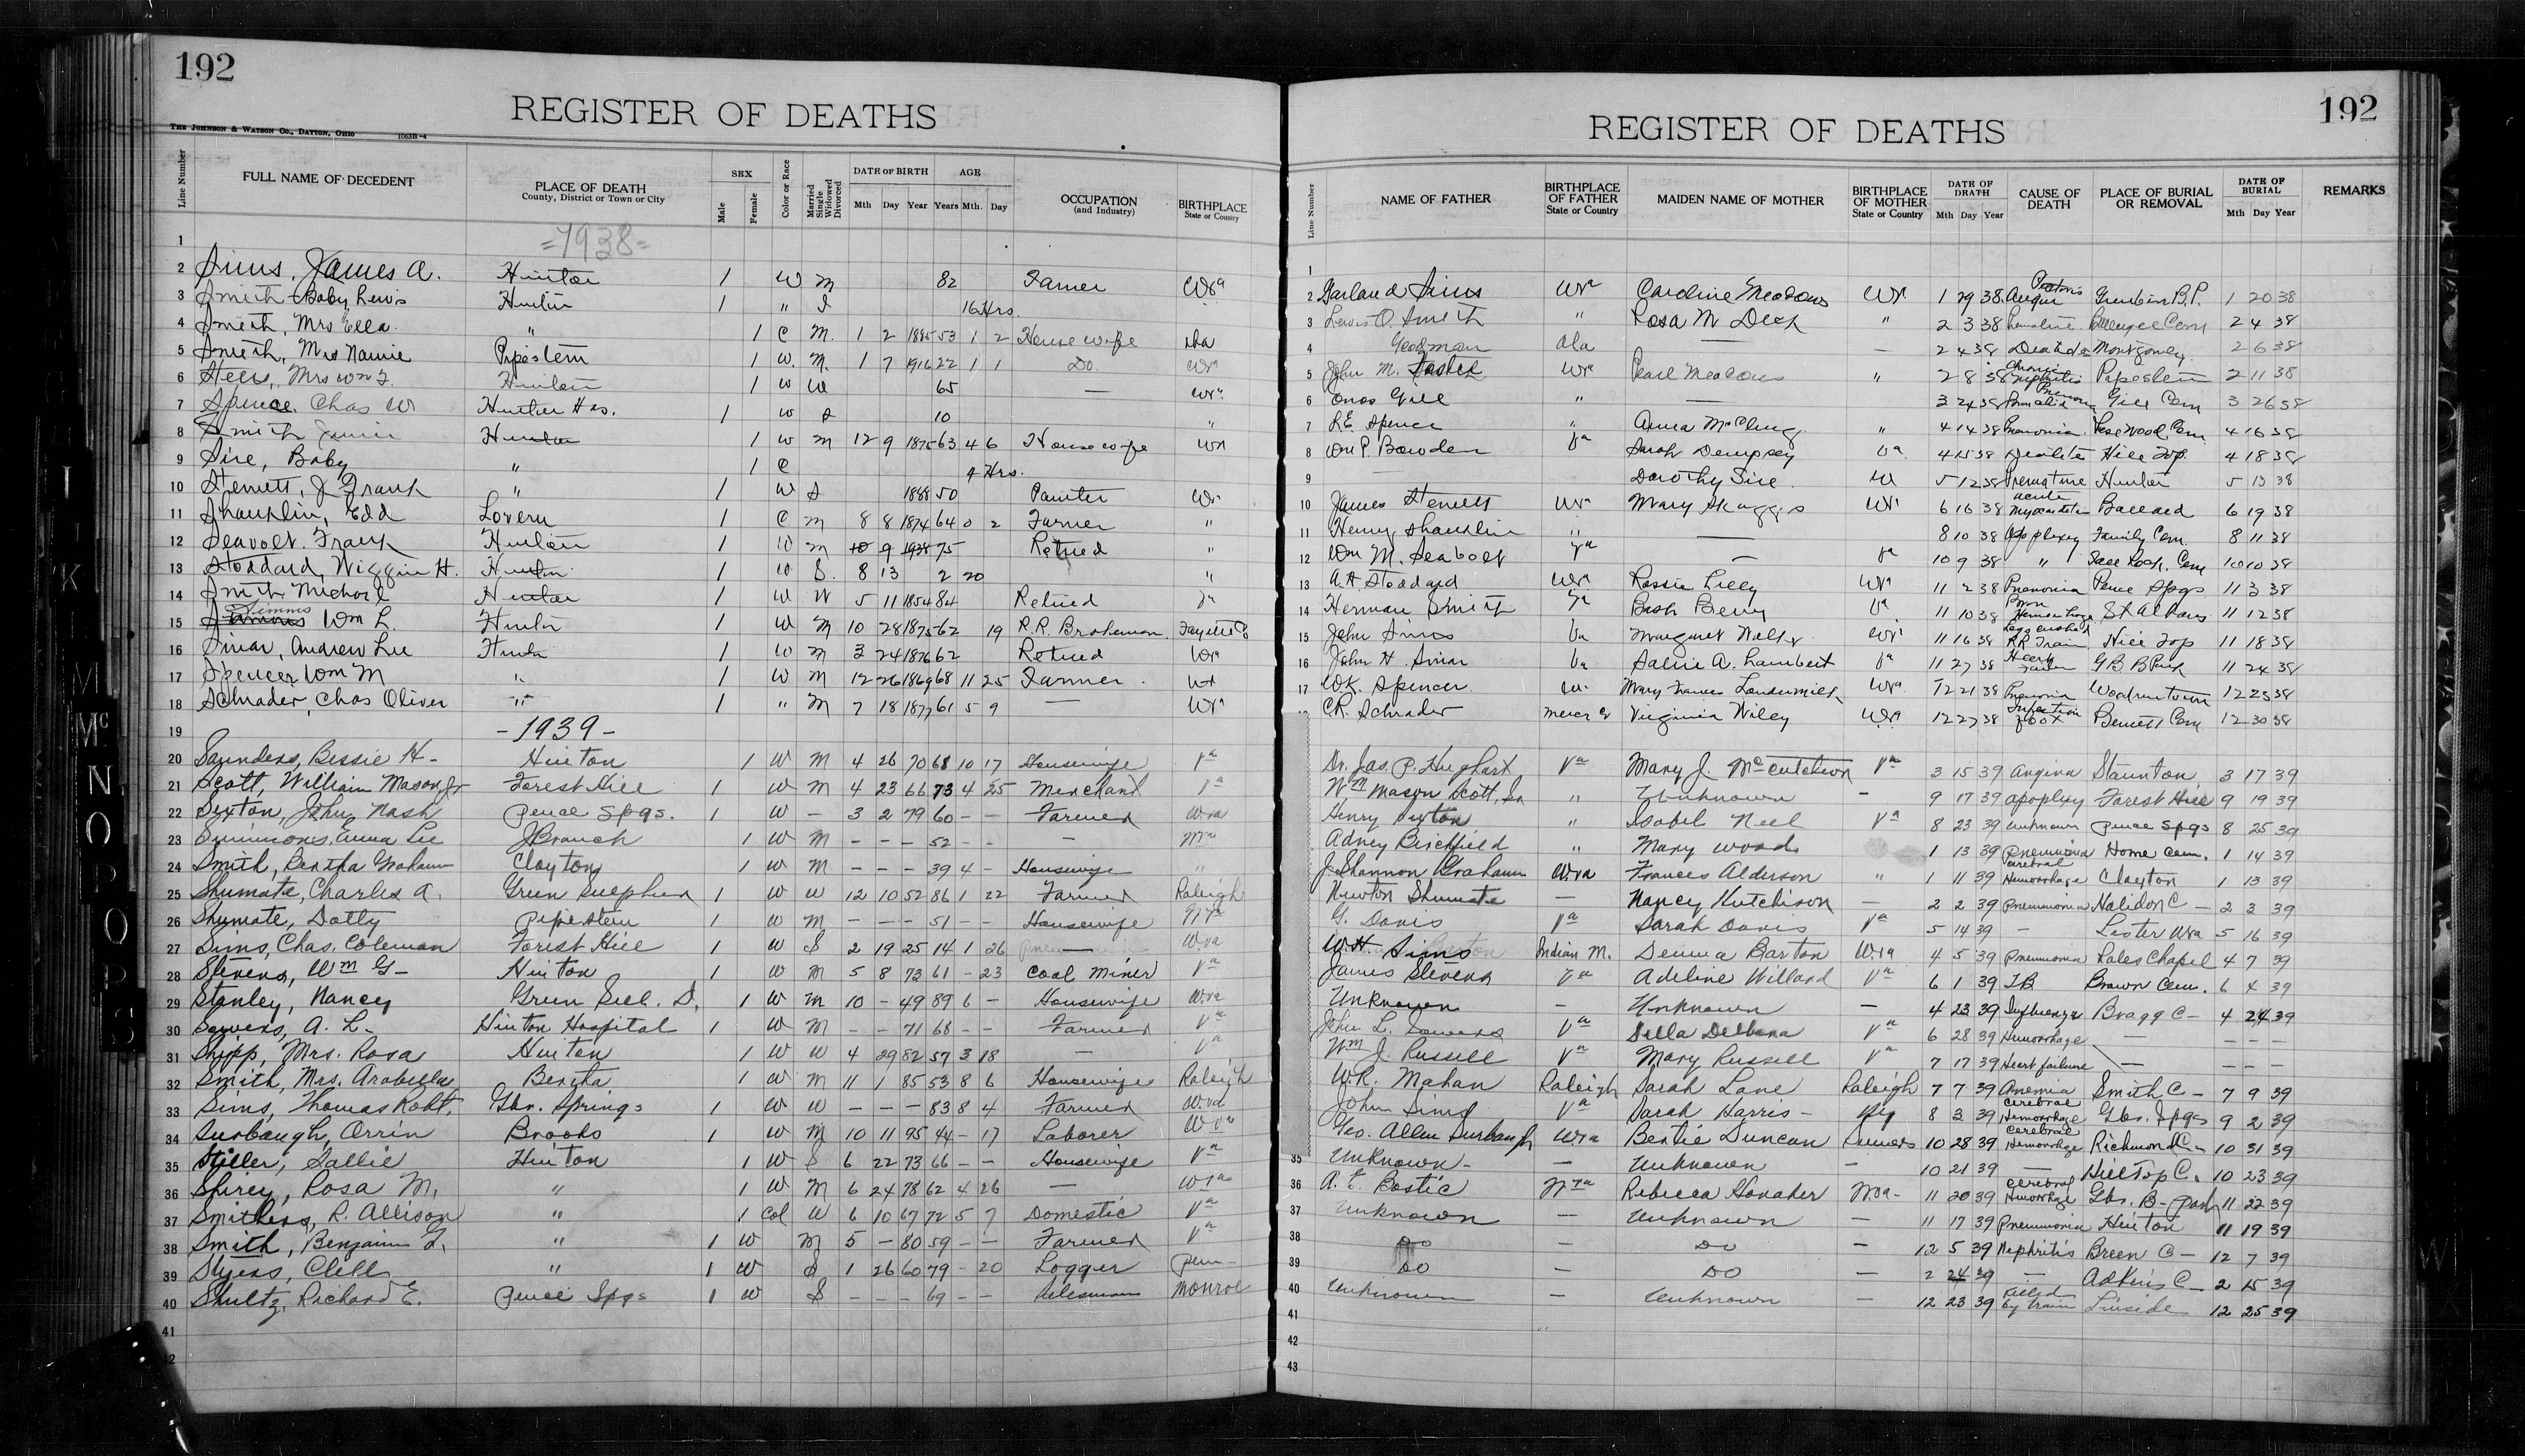 192
REGISTER OF DEATHS
THE JOHNSON & WATSON CO., DAYTON, OHIO 1063B-4
Line Number FULL NAME OF DECEDENT PLACE OF DEATH County, District or Town or City SEX Male Female Color or Race Married Single Widowed Divorced DATE OF BIRTH Mth Day Year AGE Years Mth. Day OCCUPATION (and Industry) BIRTHPLACE State or County
1 =1938=
2 Sims, James A. Hinton 1 W M 82 Farmer Wva
3 Smith Baby Lewis Hinton 1 " S 16 Hrs.
4 Smith, Mrs Ella " 1 C M. 1 2 1885 53 1 2 House wife Ala
5 Smith, Mrs Nannie Pipestem 1 W. M. 1 7 1916 22 1 1 Do. Wva
6 Mrs Wm F. Hinton 1 W W 65 — Wva
7 Spence, Chas W Hinton Hos. 1 W S 10 "
8 Smith Hinton 1 W M 12 9 1875 63 4 6 House wife Wva
9 Sire, Baby " 1 C 4 Hrs.
10 Stennett, J Frank " 1 W S 1888 50 Painter Wva
11 Shanklin, Edd Lovern 1 C M 8 8 1874 64 0 2 Farmer "
12 Seavolt, Frank Hinton 1 W M 10 9 1938 75 Retired "
13 Stoddard, Wiggin H. Hinton 1 W S. 8 13 2 20 "
14 Smith Michael Hinton 1 W W 5 11 1854 84 Retired Va
15 Simms Wm L. Hinton 1 W M 10 28 1875 62 19 R.R. Brakeman Fayette Co
16 Sinar, Andrew Lee Hinton 1 W M 3 24 1876 62 Retired Wva
17 Spencer Wm M " 1 W M 12 26 1869 68 11 25 Farmer. Wva
18 Schrader, Chas Oliver " 1 " M 7 18 1877 61 5 9 — Wva
19 -1939-
20 Saunders, Bessie H- Hinton 1 W M 4 26 70 68 10 17 Housewife Va
21 Scott, William Mason Jr Forest Hill 1 W M 4 23 66 73 4 25 Merchant Va
22 Sexton, John Nash Pence Spgs. 1 W — 3 2 79 60 — — Farmer Wva
23 Simmons, Emma Lee J Branch 1 W M — — — 52 — — — Wva
24 Smith, Bertha Graham Clayton 1 W M — — — 39 4 — Housewife "
25 Shumate, Charles A. Green Sulphur 1 W W 12 10 52 86 1 22 Farmer Raleigh
26 Shumate, Dotty Pipestem 1 W M — — — 51 — — Housewife W Va
27 Sims, Chas. Coleman Forest Hill 1 W S 2 19 25 14 1 26 — Wva
28 Stevens, Wm G- Hinton 1 W M 5 8 73 61 — 23 Coal Miner Va
29 Stanley, Nancy Green Sul. D. 1 W M 10 — 49 89 6 — Housewife Wva
30 Sowers, A. L- Hinton Hospital 1 W M — — 71 68 — — Farmer Va
31 Shipp, Mrs. Rosa Hinton 1 W W 4 29 82 57 3 18 — Va
32 Smith, Mrs. Arabella Bertha 1 W M 11 1 85 53 8 6 Housewife Raleigh
33 Sims, Thomas Robt. Gbr. Springs 1 W W — — — 83 8 4 Farmer W.va
34 Surbaugh, Orrin Brooks 1 W M 10 11 95 44 — 17 Laborer W Va
35 Stiller, Sallie Hinton 1 W S 6 22 73 66 — — Housewife Va
36 Spirey, Rosa M. " 1 W M 6 24 78 62 4 26 — W Va
37 Smithers, R. Allison " 1 Col W 6 10 67 72 5 7 Domestic Va
38 Smith, Benjamin F. " 1 W M 5 — 80 59 — — Farmer Va
39 Styers, Clell " 1 W S 1 26 60 79 — 20 Logger Penn-
40 Shultz, Richard E. Pence Spgs 1 W S — — — 69 — — Salesman Monroe
41
42
192
REGISTER OF DEATHS
Line Number NAME OF FATHER BIRTHPLACE OF FATHER State or Country MAIDEN NAME OF MOTHER BIRTHPLACE OF MOTHER State or Country DATE OF DEATH Mth Day Year CAUSE OF DEATH PLACE OF BURIAL OR REMOVAL DATE OF BURIAL Mth Day Year REMARKS
1
2 Garland Sims Wva Caroline Meadows Wva 1 19 38 Angina Pectoris Greenbrier B.P. 1 20 38
3 Lewis O. Smith " Rosa M Deck " 2 3 38 Premature Cem 2 4 38
4 Goodman Ala — — 2 4 38 Diabetes Montgomery 2 6 38
5 John M. Foster Wva Pearl Meadows " 2 8 38 Chronic Nephritis Pipestem 2 11 38
6 Enos Gill " — 3 24 38 Bronchial Pneumonia Gill Cem 3 26 38
7 L.E. Spence " Anna McClung " 4 14 38 Pneumonia Cem 4 16 38
8 Wm P. Bowden Va Sarah Dempsey Va 4 15 38 Diabetes Hill Top. 4 18 38
9 — Dorothy Sire W 5 12 38 Premature Hinton 5 13 38
10 James Stennett Wva Mary Skaggs Wva 6 16 38 acute Myocarditis Ballard 6 19 38
11 Henry Shanklin " — 8 10 38 Apoplexy Family Cem. 8 11 38
12 Wm M. Seabolt Va — Va 10 9 38 " Cem 10 10 38
13 A.H. Stoddard Wva Rossie Lilly Wva 11 2 38 Pneumonia Pence Spgs 11 3 38
14 Herman Smith Va Bash Berry Va 11 10 38 Hemorrhage St Albans 11 12 38
15 John Sims Va Margaret Wva 11 16 38 Leg crushed RR Train Hill Top 11 18 38
16 John H Sinar Va Sallie A. Lambert Va 11 27 38 Heart failure G B B Park 11 24 38
17 W.K. Spencer Mary Frances Loudermilk Wva 12 21 38 Pneumonia 12 23 38
18 C.R. Schrader Mercer Co Virginia Wiley Wva 12 27 38 Infection foot Bennett Cem 12 30 38
Dr. Jas. P. Hughart Va Mary J. McCutcheon Va 3 15 39 Angina Staunton 3 17 39
Wm Mason Scott, Sr " Unknown — 9 17 39 Apoplexy Forest Hill 9 19 39
Henry Sexton " Isabel Neel Va 8 23 39 Unknown Pence Spgs 8 25 39
Adney Birchfield " Mary Woods 1 13 39 Pneumonia Home Cem. 1 14 39
J. Shannon Graham W.va Frances Alderson " 1 11 39 Cerebral Hemorrhage Clayton 1 13 39
Newton Shumate — Nancy Hutchison — 2 2 39 Pneumonia Halidon C — 2 3 39
G. Davis Va Sarah Davis Va 5 14 39 — Lester Wva 5 16 39
W.H. Sims Indian M. Demma Barton W.va 4 5 39 Pneumonia Fales Chapel 4 7 39
James Stevens Va Adeline Willard Va 6 1 39 T.B. Brown Cem. 6 4 39
Unknown — Unknown — 4 23 39 Influenza Bragg C — 4 24 39
John L. Sowers Va Della Va 6 28 39 Hemorrhage — — — —
Wm J. Russell Va Mary Russell Va 7 17 39 Heart failure — — — —
W.R. Mahan Raleigh Sarah Lane Raleigh 7 7 39 Anemia Smith C — 7 9 39
John Sims Va Sarah Harris — 8 3 39 Cerebral Hemorrhage Gbr. Spgs 9 2 39
Geo. Allen Surbaugh W.va Bertie Duncan Sumers 10 28 39 Cerebral Hemorrhage Richmond C — 10 31 39
35 Unknown - — Unknown — 10 21 39 — Hill Top C. 10 23 39
36 A. E. Bostic W Va Rebecca Honaker W Va - 11 20 39 Cerebral Hemorrhage Gbr. B- Park 11 22 39
37 Unknown — Unknown — 11 17 39 Pneumonia Hinton 11 19 39
38 Do — Do — 12 5 39 Nephritis Breen C — 12 7 39
39 Do — Do — 2 24 39 — Adkins C — 2 15 39
40 Unknown — Unknown — 12 23 39 Killed by train Linside 12 25 39
41
42
43